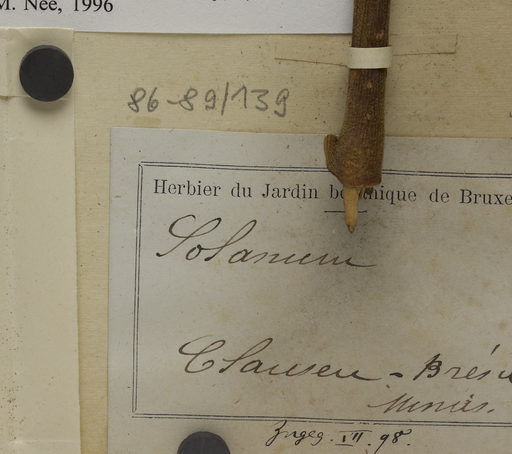 M. Nee, 1996
86-89/139
Herbier du Jardin botanique de Bruxe
Solanum
Clausen - Brési
Minas.
Ingeg. VII. 98.